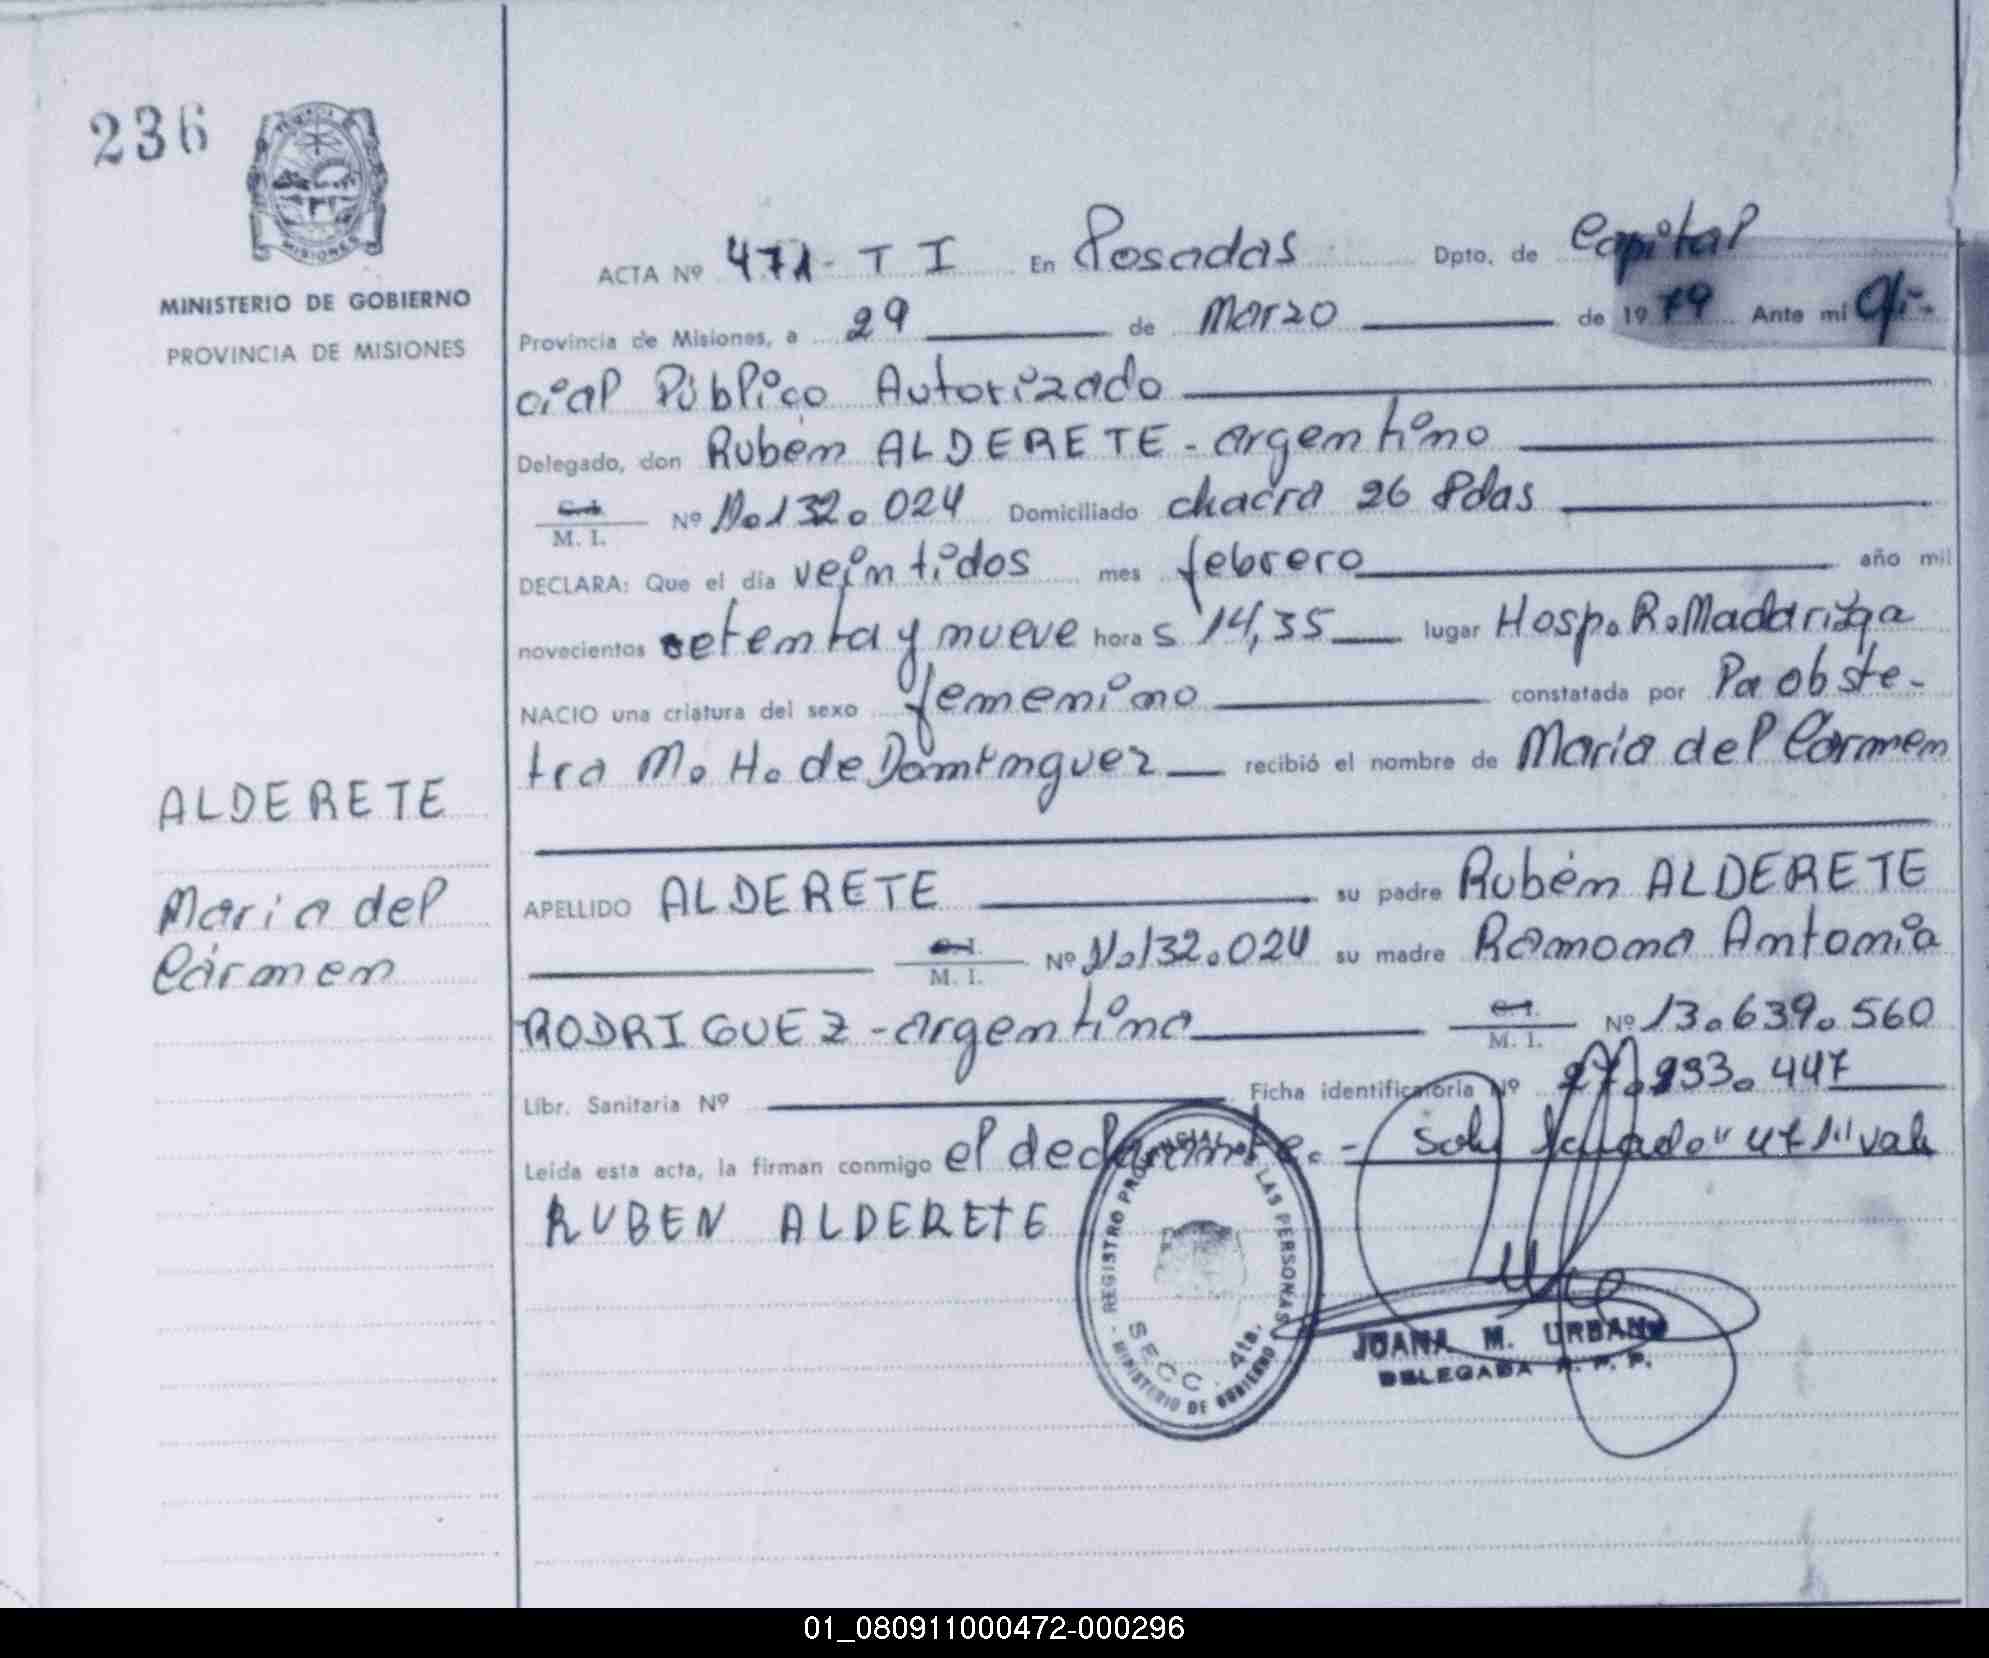 236
MINISTERIO DE GOBIERNO
PROVINCIA DE MISIONES
ACTA Nº 471 - T I En Posadas Dpto. de Capital
Provincia de Misiones, a 29 de Marzo de 1979 Ante mi Ofi-
cial Público Autorizado
Delegado, don Rubén ALDERETE - argentino
C. I.
M. I. Nº 11.132.024 Domiciliado chacra 26 Pdas
DECLARA: Que el día veintidos mes febrero año mil
novecientos setenta y nueve hora s 14,35 lugar Hosp. R. Madariaga
NACIO una criatura del sexo femenino constatada por la obste-
tra M. H. de Dominguez recibió el nombre de María del Cármen
ALDERETE
María del
Cármen
APELLIDO ALDERETE su padre Rubén ALDERETE
C. I.
M. I. Nº 11.132.024 su madre Ramona Antonia
RODRIGUEZ - argentina C. I.
M. I. Nº 13.639.560
Libr. Sanitaria Nº Ficha identificatoria Nº 27.233.447
Leída esta acta, la firman conmigo el declarante. - "471" vale
RUBEN ALDERETE
REGISTRO PROVINCIAL DE LAS PERSONAS
SECC. 4ta.
MINISTERIO DE GOBIERNO
JUANA M. URBANO
DELEGADA R. P. P.
01_080911000472-000296